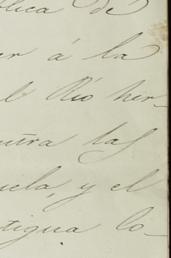 blica de
er á la
l Rio her-
ntra las
uela, y el
tigua lo-